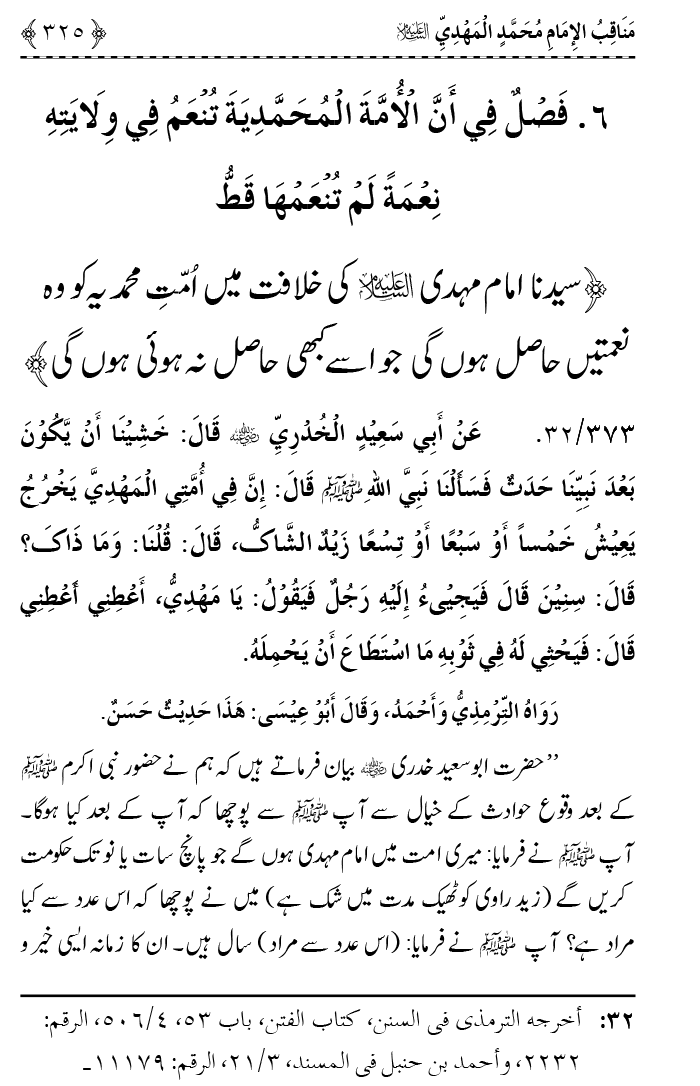 مَنَاقِبُ الإِمَامِ مُحَمَّدٍ الْمَهْدِيِّ عليه السلام ﴿ ۳۲۵ ﴾
٦. فَصْلٌ فِي أَنَّ الْأُمَّةَ الْمُحَمَّدِيَةَ تُنْعَمُ فِي وِلَايَتِهِ
نِعْمَةً لَمْ تُنْعَمْهَا قَطُّ
﴿سیدنا امام مہدی علیہ السلام کی خلافت میں اُمّتِ محمدیہ کو وہ
نعمتیں حاصل ہوں گی جو اسے کبھی حاصل نہ ہوئی ہوں گی﴾
۳۲/۳۷۳. عَنْ أَبِي سَعِيْدٍ الْخُدْرِيِّ رضی اللہ عنہ قَالَ: خَشِيْنَا أَنْ يَّكُوْنَ
بَعْدَ نَبِيِّنَا حَدَثٌ فَسَأَلْنَا نَبِيَّ اللهِ ﷺ قَالَ: إِنَّ فِي أُمَّتِي الْمَهْدِيَّ يَخْرُجُ
يَعِيْشُ خَمْساً أَوْ سَبْعًا أَوْ تِسْعًا زَيْدٌ الشَّاكُّ، قَالَ: قُلْنَا: وَمَا ذَاکَ؟
قَالَ: سِنِيْنَ قَالَ فَيَجِيْىءُ إِلَيْهِ رَجُلٌ فَيَقُوْلُ: يَا مَهْدِيُّ، أَعْطِنِي أَعْطِنِي
قَالَ: فَيَحْثِي لَهُ فِي ثَوْبِهِ مَا اسْتَطَاعَ أَنْ يَحْمِلَهُ.
رَوَاهُ التِّرْمِذِيُّ وَأَحْمَدُ، وَقَالَ أَبُوْ عِيْسَى: هَذَا حَدِيْثٌ حَسَنٌ.
’’حضرت ابوسعید خدری رضی اللہ عنہ بیان فرماتے ہیں کہ ہم نے حضور نبی اکرم ﷺ
کے بعد وقوع حوادث کے خیال سے آپ ﷺ سے پوچھا کہ آپ کے بعد کیا ہوگا۔
آپ ﷺ نے فرمایا: میری امت میں امام مہدی ہوں گے جو پانچ سات یا نو تک حکومت
کریں گے (زید راوی کو ٹھیک مدت میں شک ہے) میں نے پوچھا کہ اس عدد سے کیا
مراد ہے؟ آپ ﷺ نے فرمایا: (اس عدد سے مراد) سال ہیں۔ ان کا زمانہ ایسی خیر و
۳۲: أخرجه الترمذی فی السنن، کتاب الفتن، باب ۵۳، ۵۰۶/۴، الرقم:
۲۲۳۲، وأحمد بن حنبل فی المسند، ۲۱/۳، الرقم: ۱۱۱۷۹۔